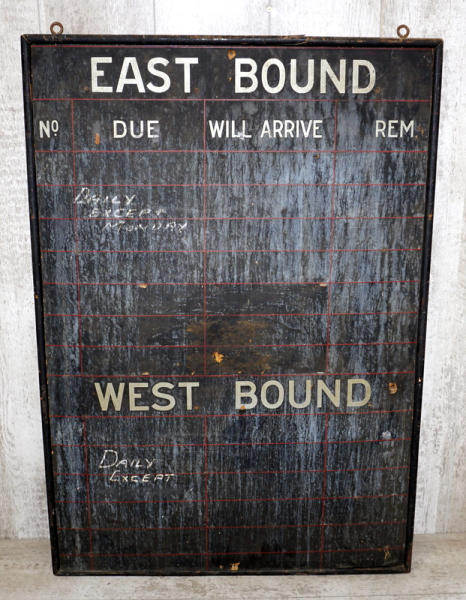 EAST BOUND
Nº DUE WILL ARRIVE REM.
DAILY
EXCEPT
MONDAY
WEST BOUND
DAILY
EXCEPT